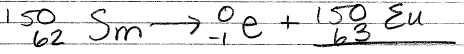 ¹⁵⁰₆₂ Sm → ⁰₋₁ e + ¹⁵⁰₆₃ Eu